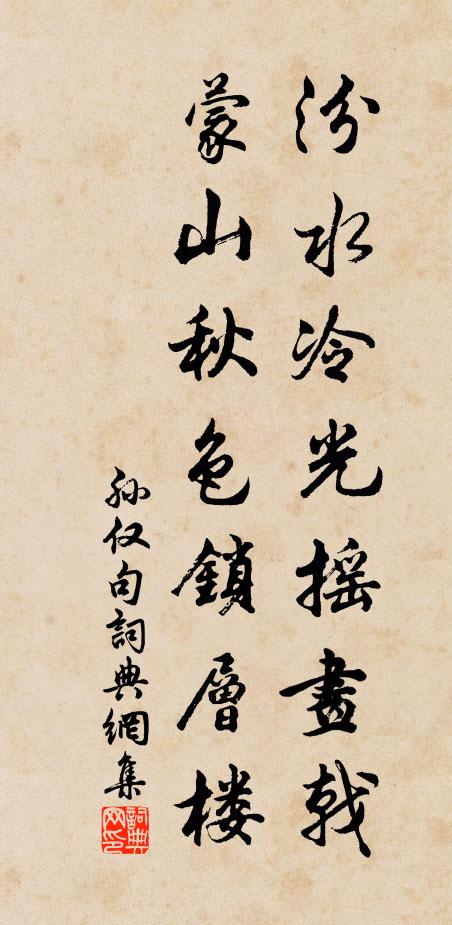 汾水冷光摇畫戟
蒙山秋色鎖層楼
孙仅句詞典網集
詞典网印